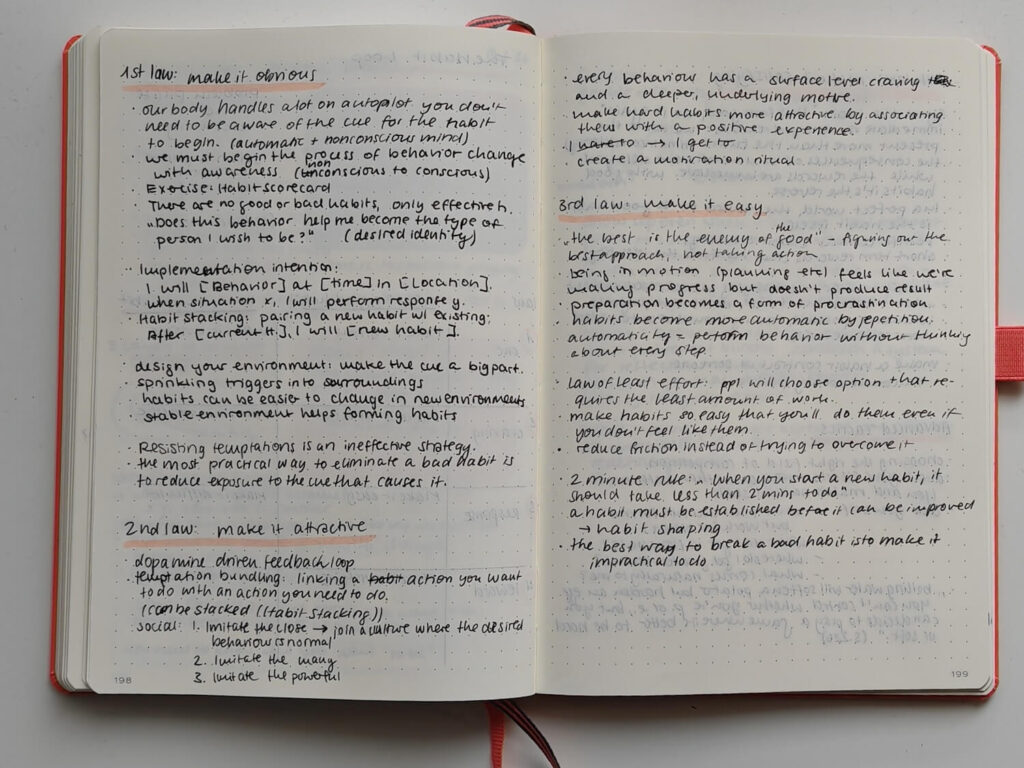 1st law: make it obvious
· our body handles a lot on autopilot you don't
need to be aware of the cue for the habit
to begin. (automatic + nonconscious mind)
· we must begin the process of behavior change
with awareness (nonconscious to conscious)
· Exercise: Habit scorecard
· There are no good or bad habits, only effective h.
„Does this behavior help me become the type of
person I wish to be?" (desired identity)
· Implementation intention:
I will [Behavior] at [time] in [Location].
when situation x, I will perform response y.
· Habit stacking: pairing a new habit w/ existing:
After [current H.], I will [new habit].
· design your environment: make the cue a big part.
· sprinkling triggers into surroundings
· habits can be easier to change in new environments
· stable environment helps forming habits
· Resisting temptations is an ineffective strategy.
· the most practical way to eliminate a bad habit is
to reduce exposure to the cue that causes it.
2nd law: make it attractive
· dopamine driven feedback loop
· temptation bundling: linking a habit action you want
to do with an action you need to do.
(can be stacked (Habit stacking))
· social: 1. Imitate the close → join a culture where the desired
behaviour is normal
2. Imitate the many
3. Imitate the powerful
198
· every behaviour has a surface level craving
and a deeper, underlying motive.
· make hard habits more attractive by associating
them with a positive experience.
· I have to → I get to
· create a motivation ritual
3rd law: make it easy
· „the best is the enemy of the good" – figuring out the
best approach, not taking action
· being in motion (planning etc) feels like we're
making progress but doesn't produce result
· preparation becomes a form of procrastination
· habits become more automatic by repetition.
· automaticity = perform behavior without thinking
about every step.
· law of least effort: ppl will choose option that re-
quires the least amount of work.
· make habits so easy that you'll do them even if
you don't feel like them.
· reduce friction instead of trying to overcome it
· 2 minute rule: „when you start a new habit, it
should take less than 2 mins to do"
· a habit must be established before it can be improved
→ habit shaping
· the best way to break a bad habit is to make it
impractical to do.
199